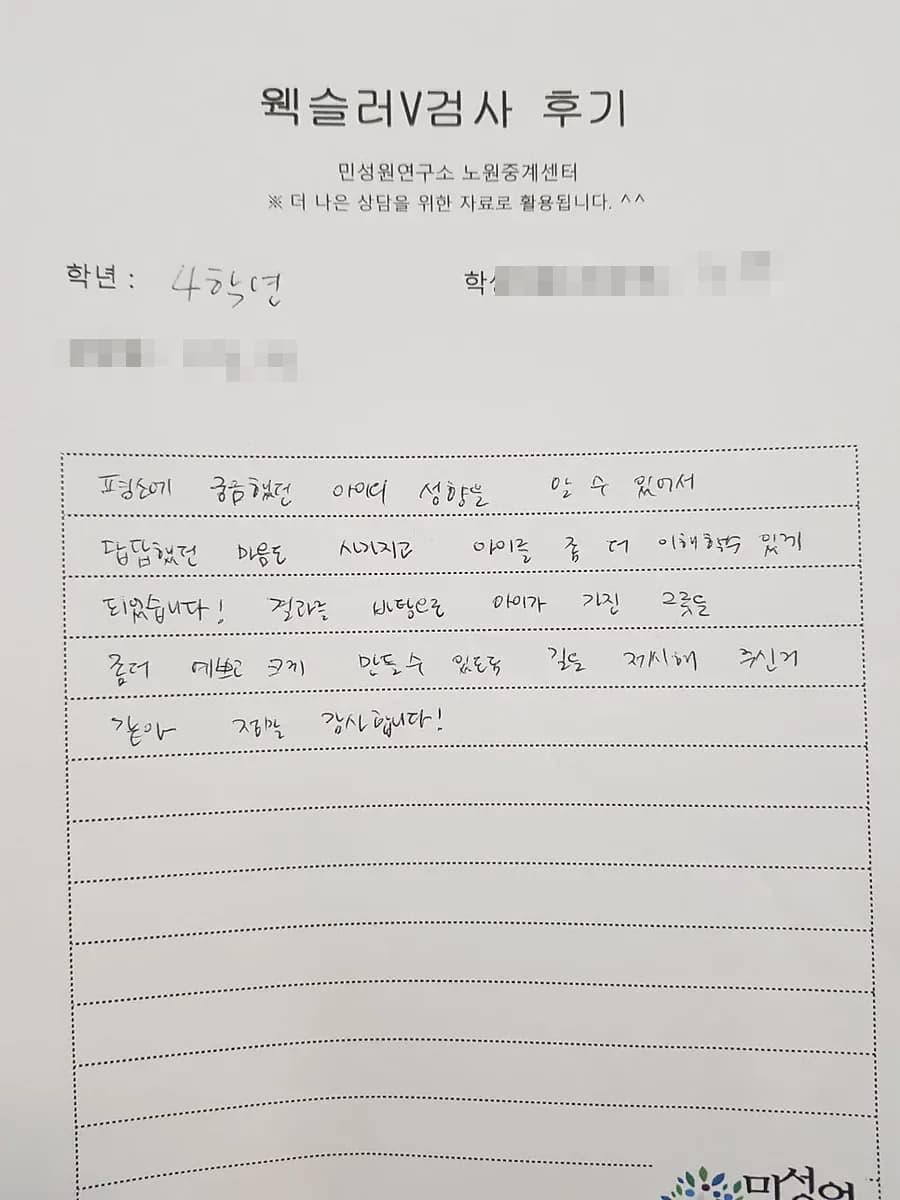 웩슬러V검사 후기
민성원연구소 노원중계센터
※ 더 나은 상담을 위한 자료로 활용됩니다. ^^
학년 : 4학년
평소에 궁금했던 아이의 성향을 알 수 있어서
답답했던 마음도 사라지고 아이를 좀 더 이해할수 있게
되었습니다! 결과를 바탕으로 아이가 가진 그릇을
좀더 예쁘고 크게 만들수 있도록 길을 제시해 주신거
같아 정말 감사합니다!
민성원